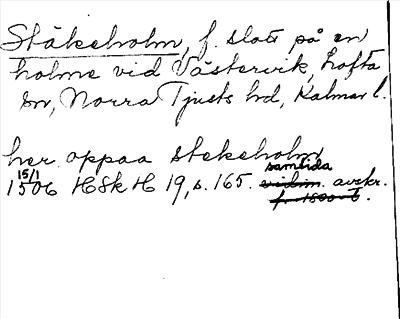 Stäkeholm, f. slott på en
holme vid Västervik, Lofta
sn, Norra Tjusts hd, Kalmar l.
her oppaa stekeholm
15/1 samtida
1506 HSkH 19, s. 165. vidim. avskr.
f. 1500-t.